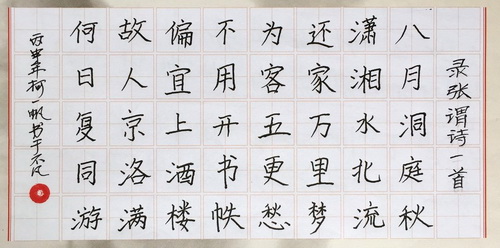 录张谓诗一首
八月洞庭秋
潇湘水北流
还家万里梦
为客五更愁
不用开书帙
偏宜上酒楼
故人京洛满
何日复同游
丙申年柯一帆书于不